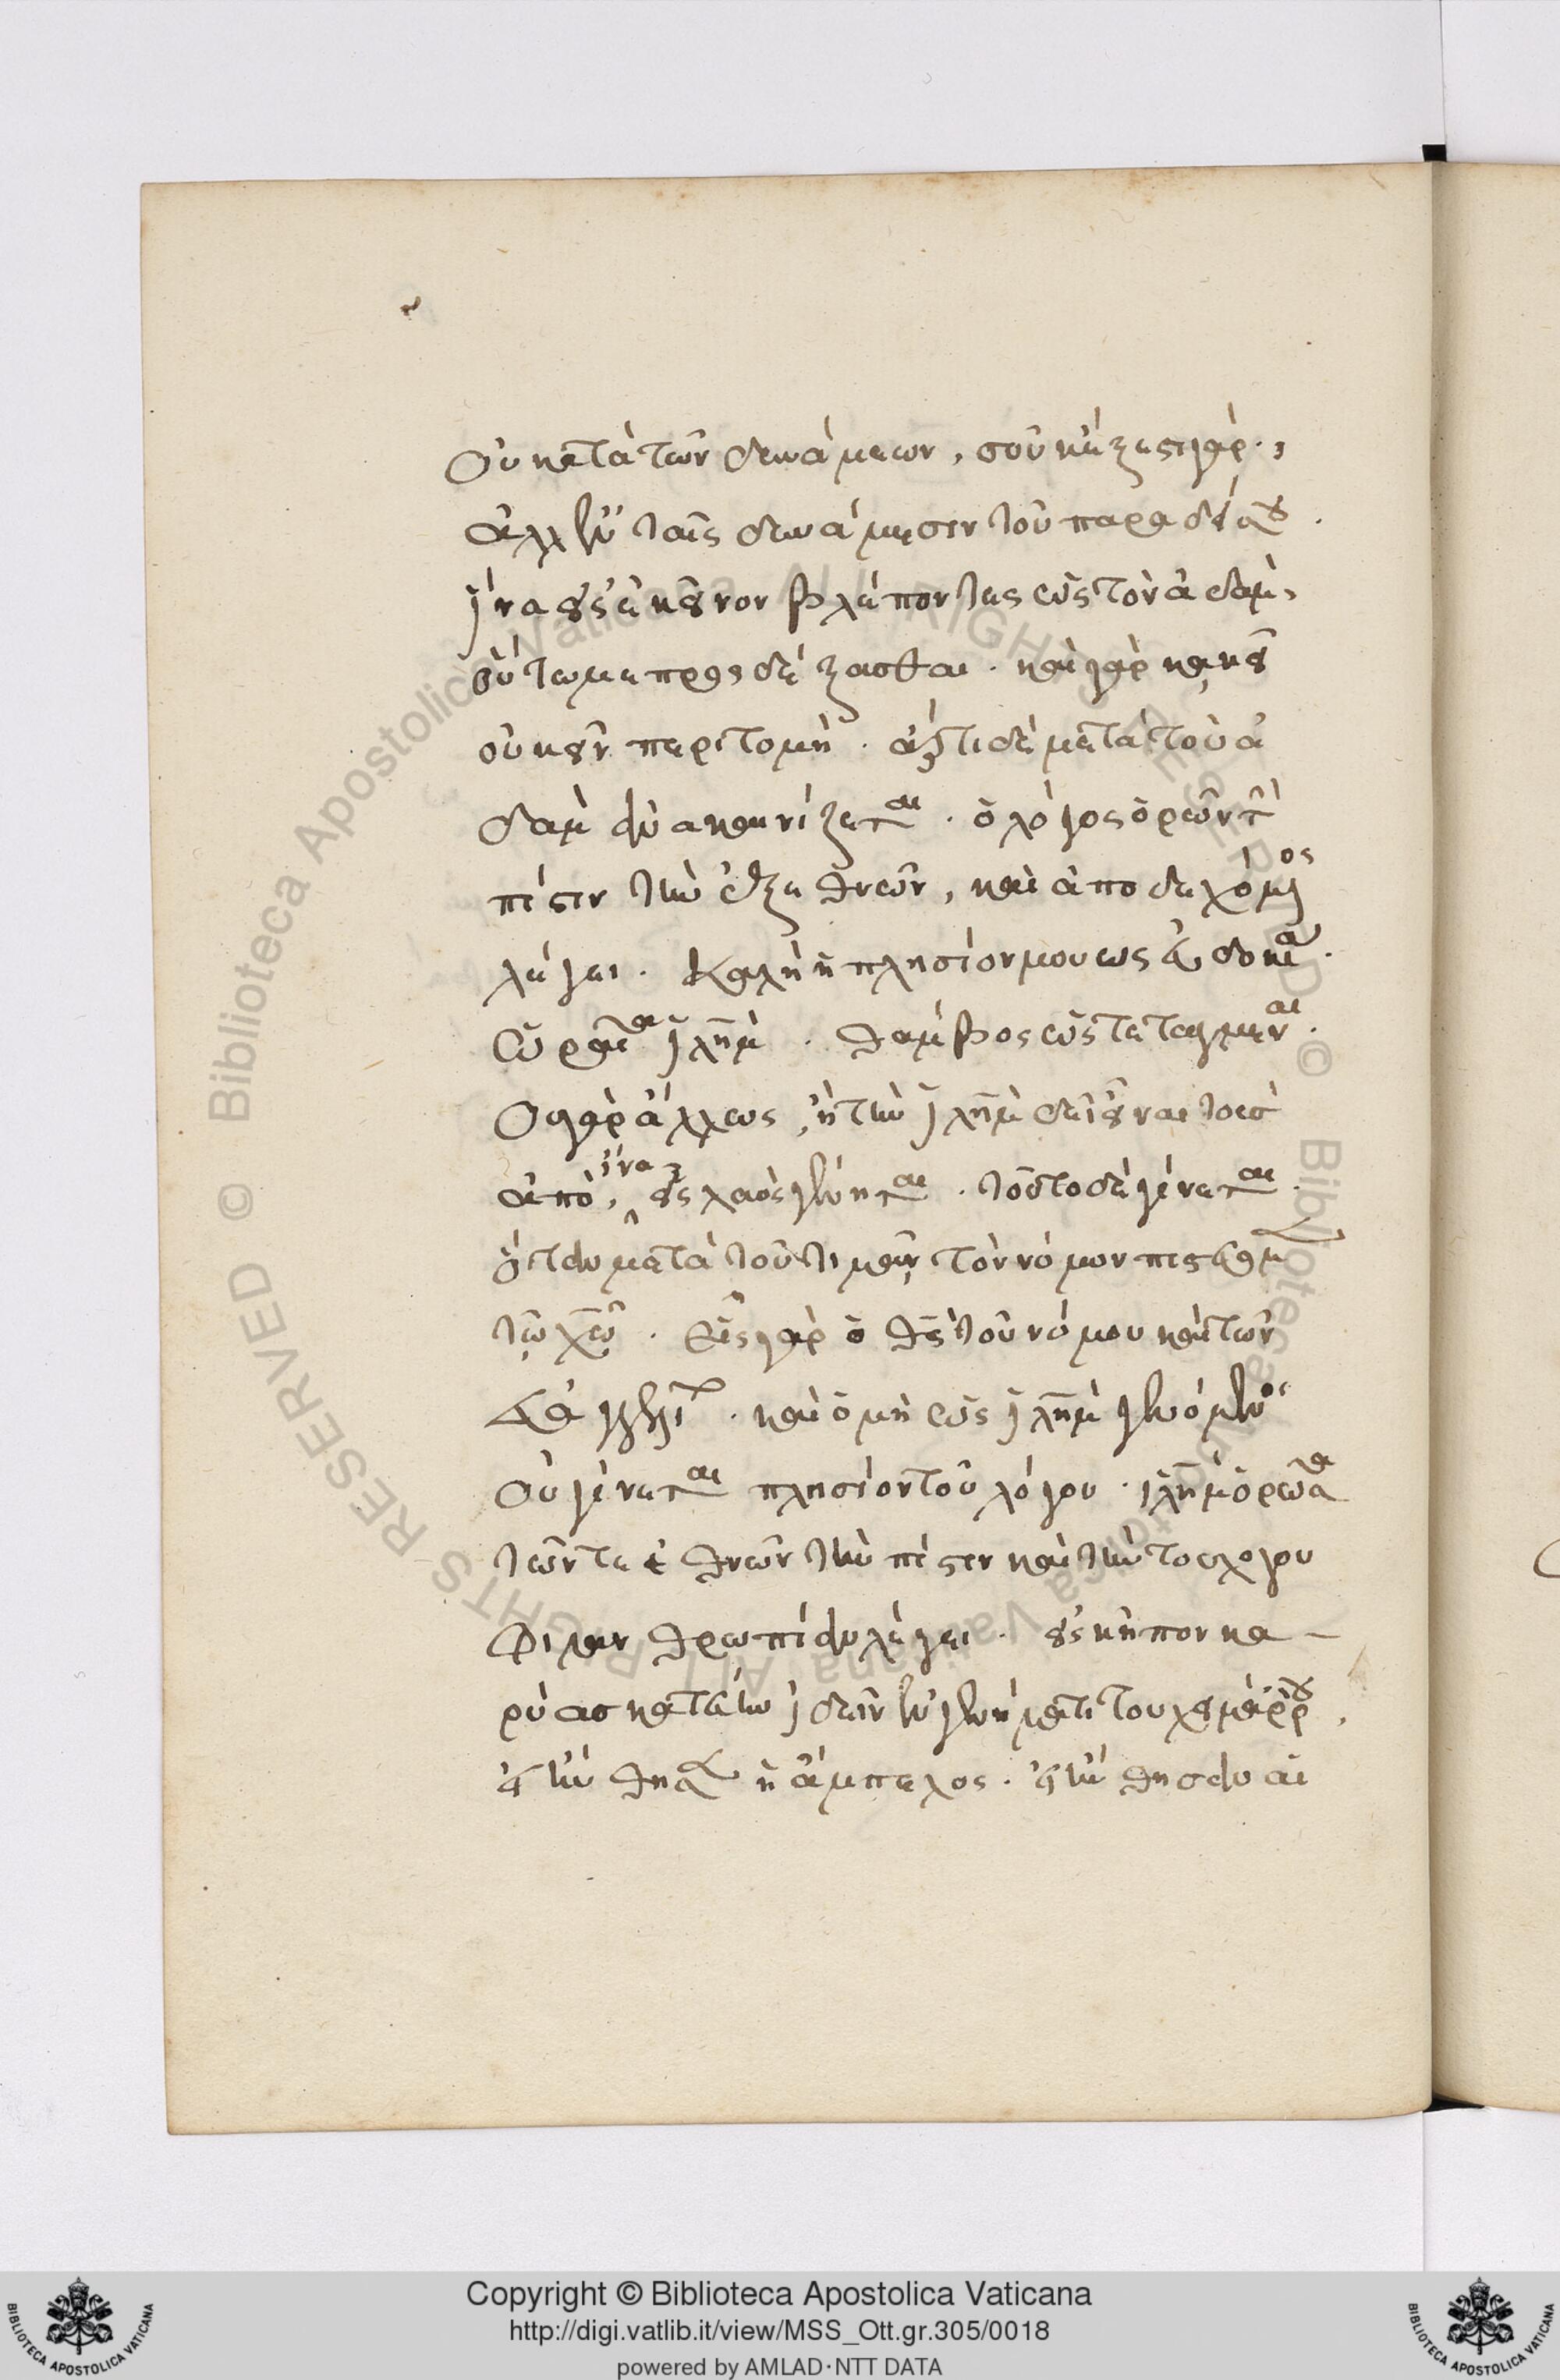 Οὐ κατὰ τῶν δυνάμεων, σοῦ κήξεσι γὰρ.,
ἀλλ' ἐν ταῖς δυνάμεσιν τοῦ παραδείσου.
ἵνα ὡς ἐκεῖνον βλέποντες εἰς τὸν ἀδὰμ,
οὕτω με προσδέξασθαι. καὶ γὰρ κακεῖ
οὐκ ἦν περιτομή. ἄρτι δὲ μετὰ τοῦ ἀ
δὰμ ἐνακαινίζεται. ὁ λόγος ὁρῶν τὴν
πίστιν τὴν ἐξ ἐθνῶν, καὶ ἀποδεχόμενος
λέγει. Καλὴ ἡ πλησίον μου ὡς εὐδοκία.
Ὡραία ὡς ἱλημ. θάμβος ὡς τεταγμέναι.
Οὐ γὰρ ἄλλως, ἢ τὴν ἱλημ δεῖ εἶναι τοῦσ
ἀπὸ, ἵνα εἷς λαὸς γένηται. τοῦτο δὲ γίνεται.
ὅταν μετὰ τοῦ τιμᾶν τὸν νόμον πιστεύωμεν
τῷ χῷ. Εἷς γὰρ ὁ θς τοῦ νόμου καὶ τῶν
εὐαγγελίων. καὶ ὁ μὴ ὡς ἱλημ γενόμενος
οὐ γίνεται πλησίον τοῦ λόγου. ἱλημ ὁρῶσα
τῶν τε ἐθνῶν τὴν πίστιν καὶ τὴν τοῦ λόγου
φιλανθρωπίαν λέγει. εἰς κῆπον κα-
ρύασ κατέβην ἰδεῖν ἐν γενήματι του χειμάρρου,
εἰ ἤνθησεν ἡ ἄμπελος. εἰ ἤνθησαν αἱ